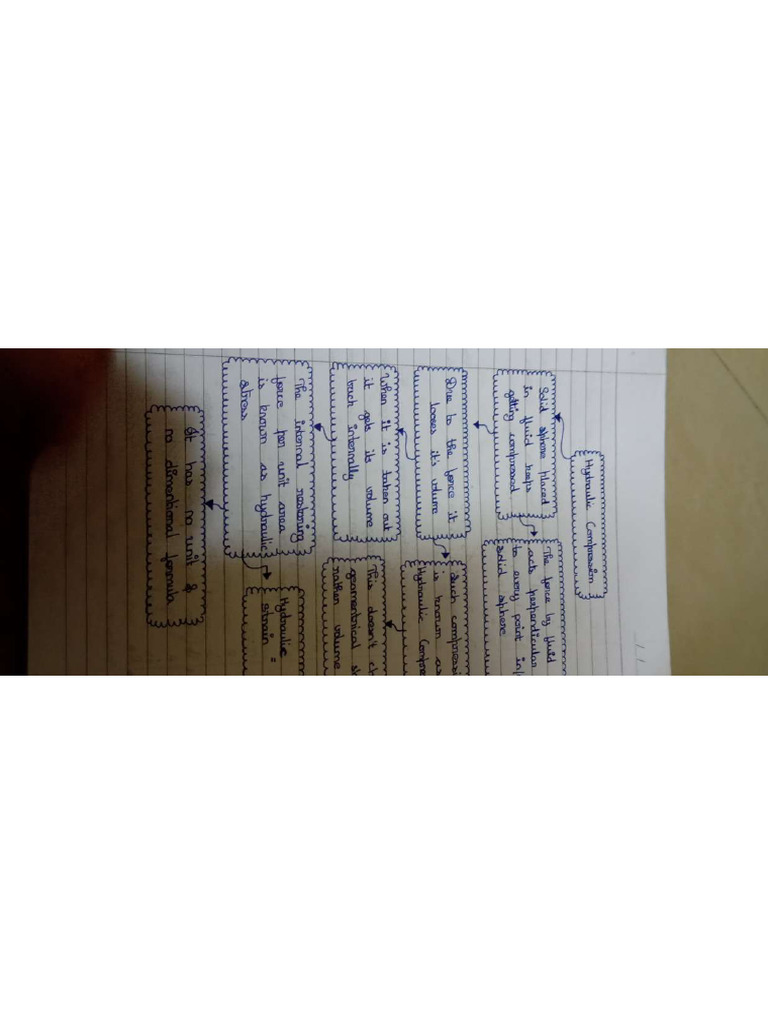 Hydraulic Compression
Solid sphere placed
in fluid keeps
getting compressed
The force by fluid
acts perpendicular
to every point
solid sphere
Due to the force it
looses it's volume
Such
is known as
Hydraulic
When it is taken out
it gets its volume
back internally
This doesn't
geomentrical
rather volume
The internal restoring
force per unit area
is known as hydraulic
stress
Hydraulic
strain =
It has no unit &
no dimentional formula